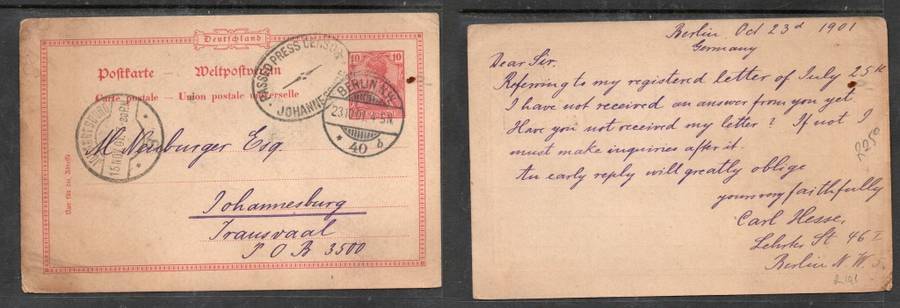 Deutschland
10 10
Postkarte — Weltpostverein
Carte postale — Union postale universelle
PASSED PRESS CENSOR
JOHANNES
BERLIN N.W.
40
JOHANNESBURG
Nur für die Adresse
M Neuburger Esq.
Johannesburg
Transvaal
P O B 3500
Berlin Oct 23d 1901
Germany
Dear Sir.
Referring to my registered letter of July 25th
I have not received an answer from you yet
Have you not received my letter? If not I
must make inquiries after it.
An early reply will greatly oblige
yours very faithfully
Carl Hesse,
Lehrter St 46 I
Berlin N. W. 5.
R250